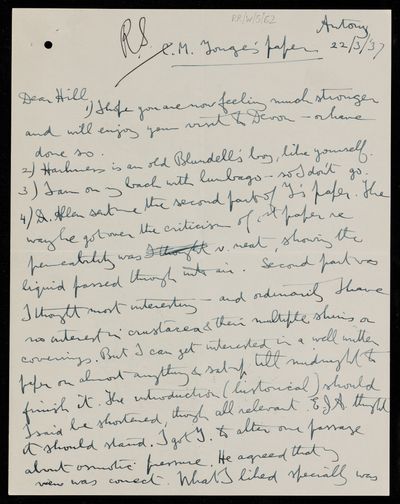 RR/W/S/62
Antony
R.S
C.M. Yonge's paper 22/3/37
Dear Hill
1) I hope you are now feeling much stronger
and will enjoy your visit to Devon – or have
done so.
2) Harkness is an old Blundell's boy, like yourself.
3) I am on my back with lumbago – so I don't go.
4) Dr. Allen sent me the second part of Y's paper. The
way he got over the criticism of 1st paper re
permeability was I thought v. neat, showing the
liquid passed through into air. Second part was
I thought most interesting – and ordinarily I have
no interest in crustacea & their multiple skins or
coverings. But I can get interested in a well written
paper on almost anything & sat up till midnight to
finish it. The introduction (historical) should
I said be shortened, though all relevant. E.J.A. thought
it should stand. I got Y. to alter one passage
about osmotic pressure. He agreed that my
view was correct. What I liked specially was